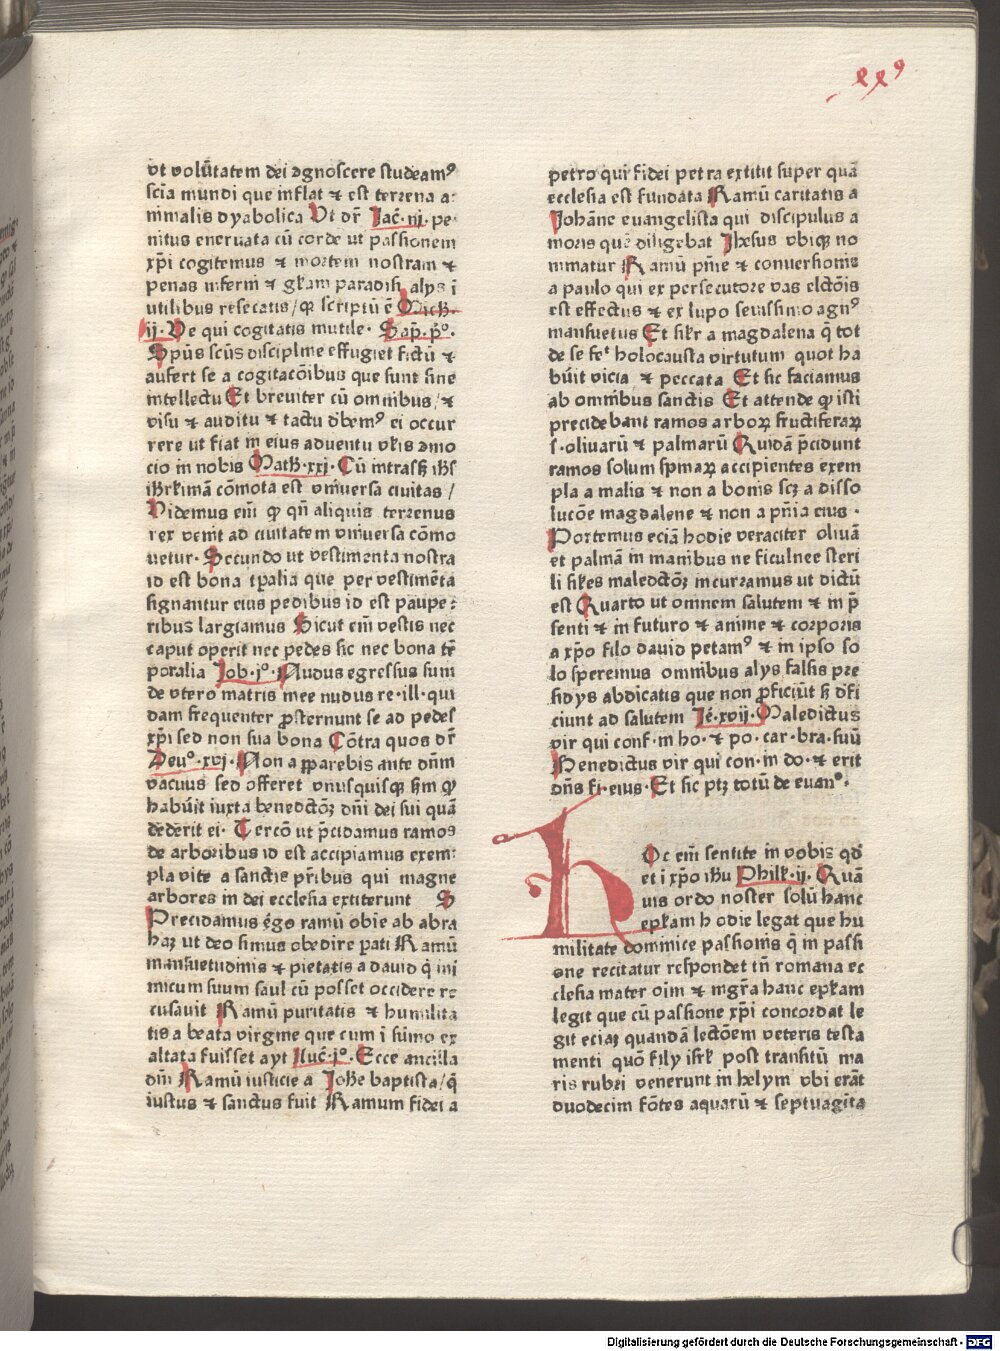 vt volūtatem dei ꝯgnoscere studeamꝰ
scīa mundi que inflat ⁊ est terrena a-
nimalis dyabolica Ut dr̄ Jac̄·iij·pe-
nitus eneruata cū corde ut passionem
xp̄i cogitemus ⁊ mortem nostram ⁊
penas inferni ⁊ gl̄iam paradisi alys ī
utilibus resecatis/qꝫ scriptū ē Mich·
ij·Ve qui cogitatis inutile· Sap̄·p̄º·
Spūs scūs discipline effugiet fictū ⁊
aufert se a cogitacōibus que sunt sine
intellectu Et breuiter cū omnibus/⁊
visu ⁊ auditu ⁊ tactu dēbemꝰ ei occur
rere ut fiat in eius aduentu vl̄is ꝯmo
cio in nobis Math·xxj·Cū intrassꝫ ih̄s
ih̄rl̄imā cōmota est vniuersa ciuitas/
Videmus em̄ ꝙ qn̄ aliquis terrenus
rex venit ad ciuitatem vniuersa cōmo
uetur· Secundo ut vestimenta nostra
id est bona tꝑalia que per vestimēta
signantur eius pedibus id est paupe-
ribus largiamus Sicut em̄ vestis nec
caput operit nec pedes sic nec bona tē
poralia Job·jº·Nudus egressus sum
de vtero matris mee nudus re·ill·qui
dam frequenter ꝓsternunt se ad pedes
xp̄i sed non sua bona Cōtra quos dr̄
Deuº·xvj·Non apparebis ante dn̄m
vacuus sed offeret vnusquisqꝫ s̄m ꝙ
habūit iuxta benedictōꝫ dn̄i dei sui quā
dederit ei· Tercō ut p̄cidamus ramos
de arboribus id est accipiamus exem-
pla vite a sanctis pr̄ibus qui magne
arbores in dei ecclesia extiterunt S
Precidamus ēgo ramū obie ab abra
haꝫ ut deo simus obedire pati Ramū
mansuetudinis ⁊ pietatis a dauid q̄ ini
micum suum saul cū posset occidere re
cusauit Ramū puritatis ⁊ humilita
tis a beata virgine que cum ī sūmo ex
altata fuisset ayt Luc̄·jº·Ecce ancilla
dn̄i Ramū iusticie a Joħe baptista/q̄
iustus ⁊ sanctus fuit Ramum fidei a
petro qui fidei petra extitit super quā
ecclesia est fundata Ramū caritatis a
Johāne euangelista qui discipulus a
moris quē diligebat Jhesus vbiqꝫ no
minatur Ramū pn̄ie ⁊ conuersionis
a paulo qui ex persecutore vas elctōis
est effectus ⁊ ex lupo seuissimo agnꝰ
mansuetus Et sil̄r a magdalena q̄ tot
de se fet̄ holocausta virtutum quot ha
būit vicia ⁊ peccata Et sic faciamus
ab omnibus sanctis Et attende ꝙ isti
precidebant ramos arboꝝ fructiferaꝝ
s·oliuarū ⁊ palmarū Quidā p̄cidunt
ramos solum spinaꝝ accipientes exem
pla a malis ⁊ non a bonis scꝫ a disso
lucōe magdalene ⁊ non a pn̄ia eius·
Portemus eciā hodie veraciter oliuā
et palmā in manibus ne ficulnee steri
li sil̄es maledctōꝫ incurramus ut dictū
est Quarto ut omnem salutem ⁊ in p̄
senti ⁊ in futuro ⁊ anime ⁊ corporis
a xp̄o filo dauid petamꝰ ⁊ in ipso so
lo speremus omnibus alys falsis pre
sidys abdicatis que non ꝓficiūt sꝫ dēfi
ciunt ad salutem Jē·xvij·Maledictus
vir qui conf·in ho·⁊ po·car·bra·suū
Benedictus vir qui con·in do·⁊ erit
dn̄s fi·eius·Et sic ptꝫ totū de euanº·
Hoc em̄ sentite in vobis qd̄
et ī xp̄o ih̄u Philł·ij·Quā
uis ordo noster solū hanc
epl̄am hodie legat que hu
militate dominice passionis q̄ in passi
one recitatur respondet tn̄ romana ec
clesia mater oīm ⁊ mgr̄a hanc epl̄am
legit que cū passione xp̄i concordat le
git eciaꝫ quandā lectōem veteris testa
menti quō fily isrł post transitū ma
ris rubri venerunt in helym vbi erāt
duodecim fōtes aquarū ⁊ septuagīta
Digitalisierung gefördert durch die Deutsche Forschungsgemeinschaft - DFG